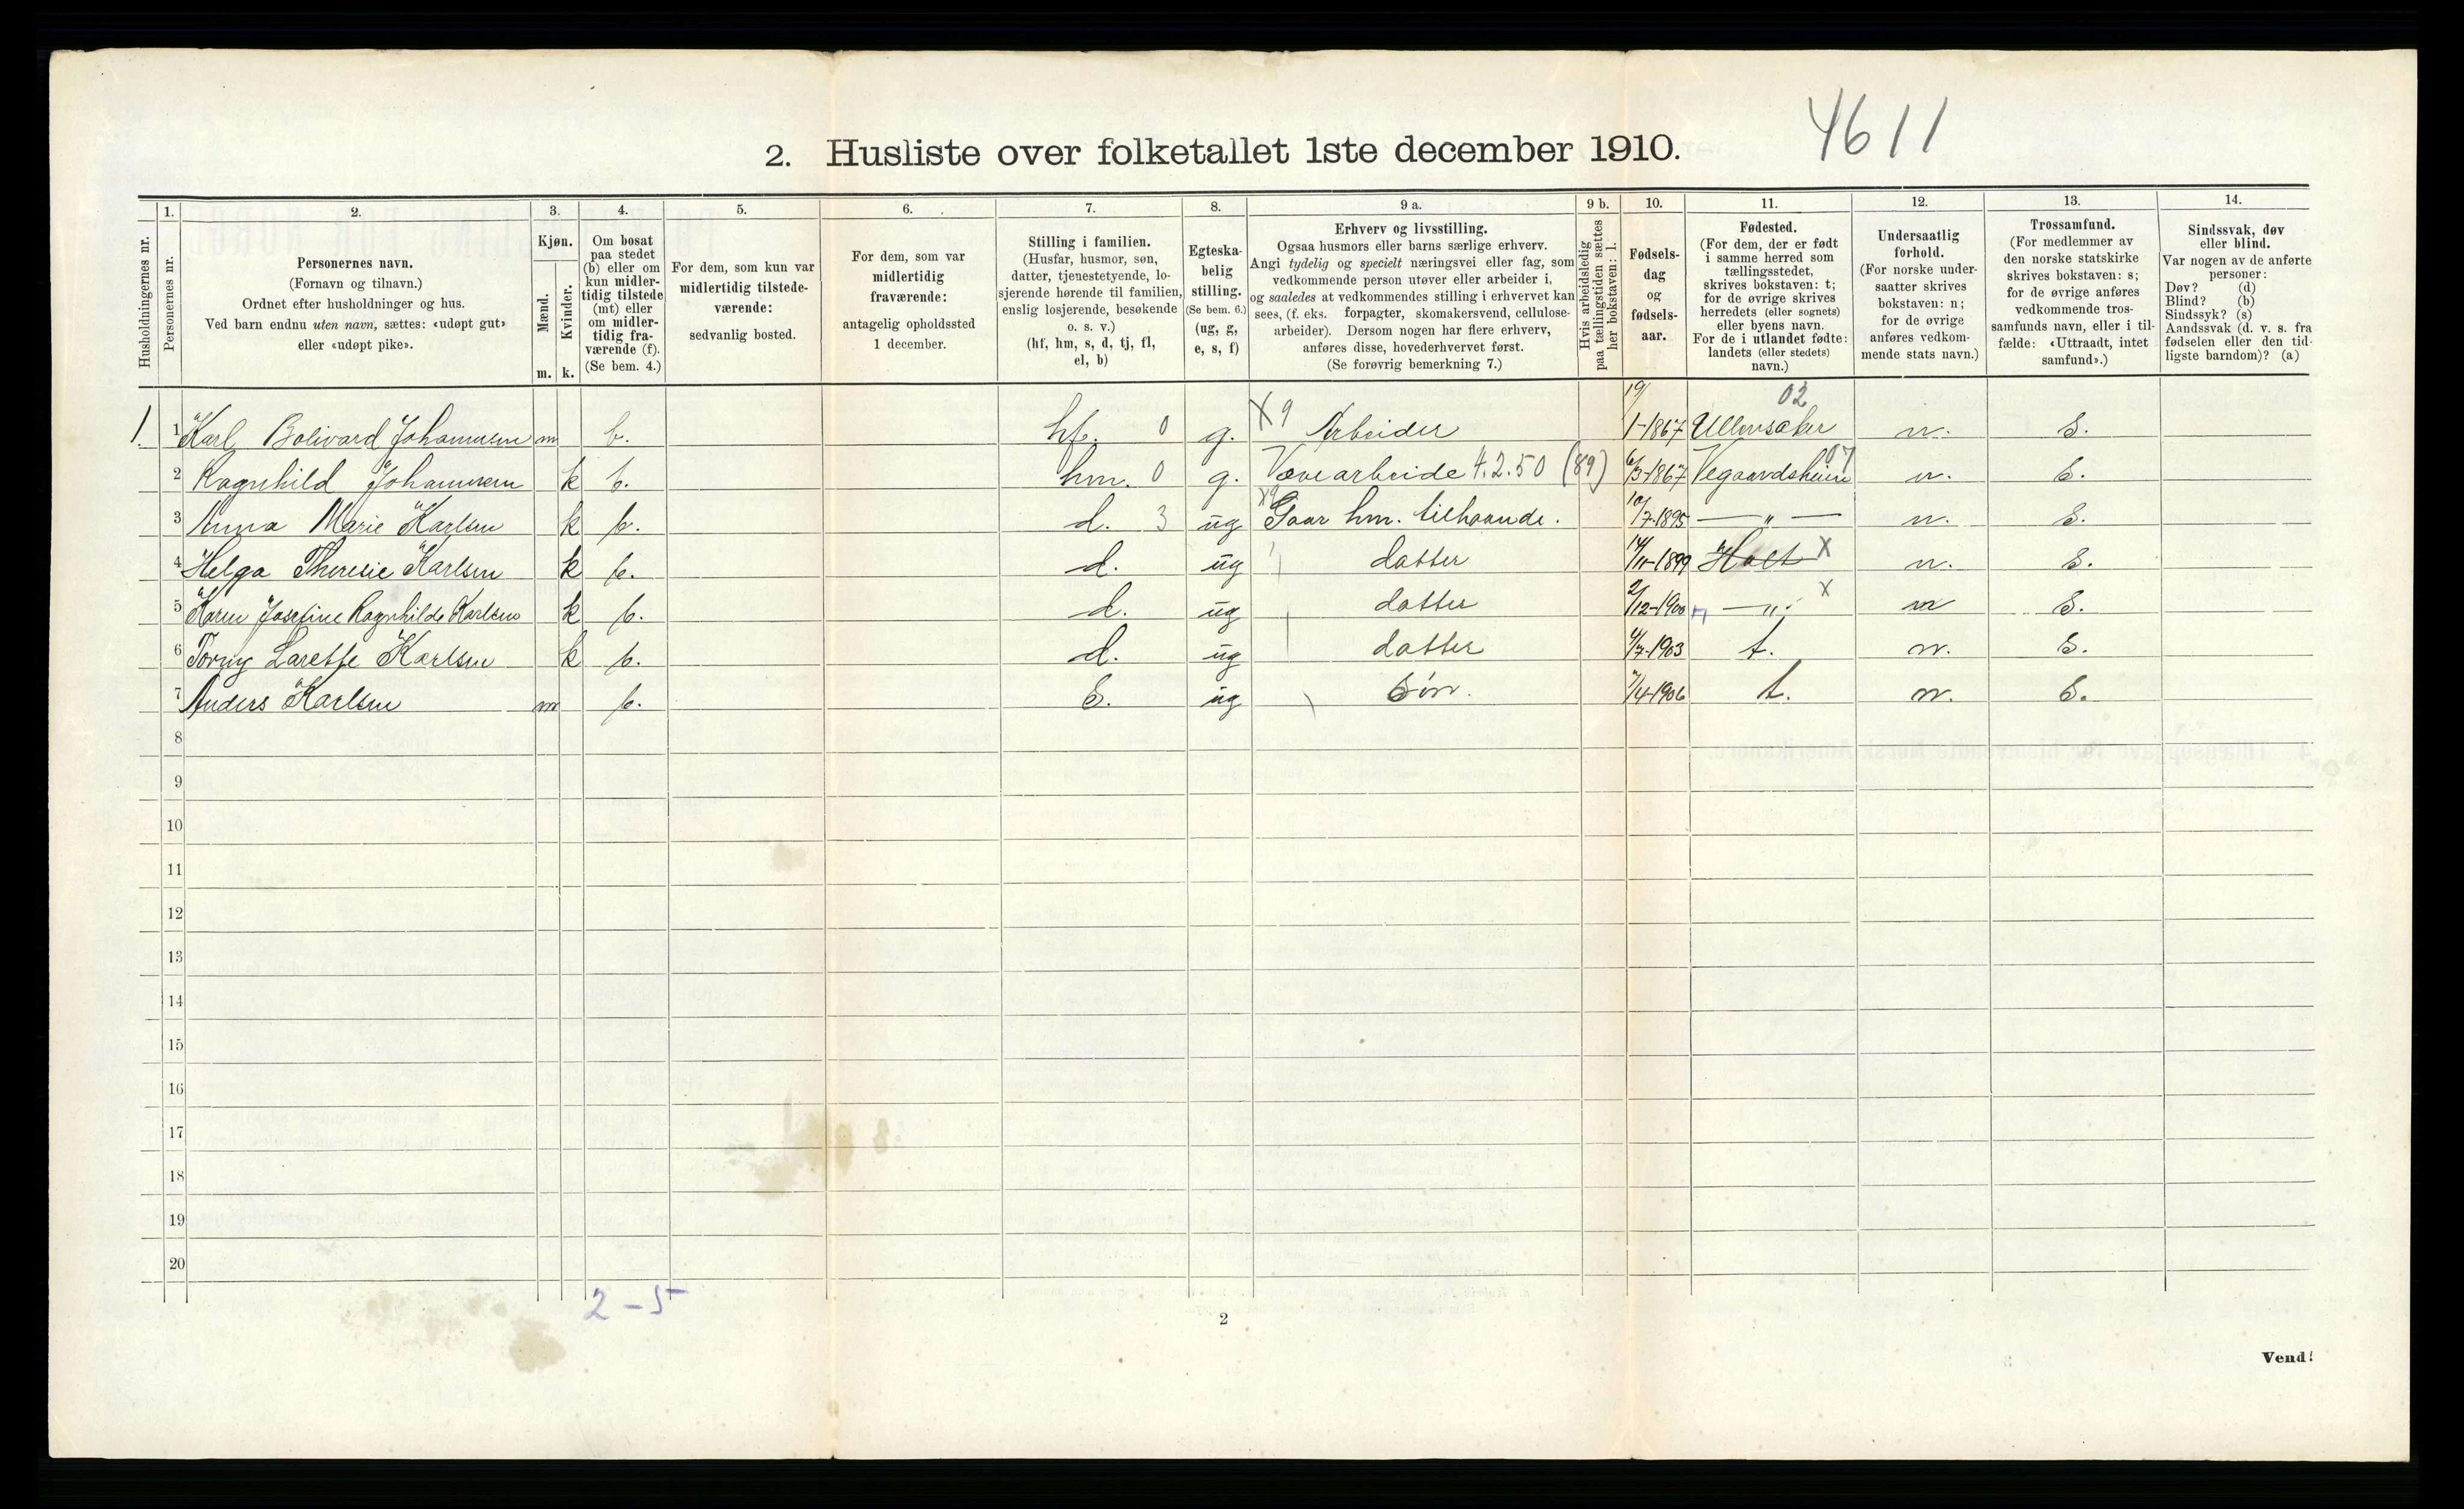 4611
2. Husliste over folketallet 1ste december 1910.
Husholdningernes nr.
1.
Personernes nr.
2.
Personernes navn.
(Fornavn og tilnavn.)
Ordnet efter husholdninger og hus.
Ved barn endnu uten navn, sættes: «udøpt gut»
eller «udøpt pike».
3.
Kjøn.
Mænd.
Kvinder.
m. k.
4.
Om bosat
paa stedet
(b) eller om
kun midler-
tidig tilstede
(mt) eller
om midler-
tidig fra-
værende (f).
(Se bem. 4.)
5.
For dem, som kun var
midlertidig tilstede-
værende:
sedvanlig bosted.
6.
For dem, som var
midlertidig
fraværende:
antagelig opholdssted
1 december.
7.
Stilling i familien.
(Husfar, husmor, søn,
datter, tjenestetyende, lo-
sjerende hørende til familien,
enslig losjerende, besøkende
o. s. v.)
(hf, hm, s, d, tj, fl,
el, b)
8.
Egteska-
belig
stilling.
(Se bem. 6.)
(ug, g,
e, s, f)
9 a.
Erhverv og livsstilling.
Ogsaa husmors eller barns særlige erhverv.
Angi tydelig og specielt næringsvei eller fag, som
vedkommende person utøver eller arbeider i,
og saaledes at vedkommendes stilling i erhvervet kan
sees, (f. eks. forpagter, skomakersvend, cellulose-
arbeider). Dersom nogen har flere erhverv,
anføres disse, hovederhvervet først.
(Se forøvrig bemerkning 7.)
9 b.
Hvis arbeidsledig
paa tællingstiden sættes
her bokstaven: l.
10.
Fødsels-
dag
og
fødsels-
aar.
11.
Fødested.
(For dem, der er født
i samme herred som
tællingsstedet,
skrives bokstaven: t;
for de øvrige skrives
herredets (eller sognets)
eller byens navn.
For de i utlandet fødte:
landets (eller stedets)
navn.)
12.
Undersaatlig
forhold.
(For norske under-
saatter skrives
bokstaven: n;
for de øvrige
anføres vedkom-
mende stats navn.)
13.
Trossamfund.
(For medlemmer av
den norske statskirke
skrives bokstaven: s;
for de øvrige anføres
vedkommende tros-
samfunds navn, eller i til-
fælde: «Uttraadt, intet
samfund».)
14.
Sindssvak, døv
eller blind.
Var nogen av de anførte
personer:
Døv? (d)
Blind? (b)
Sindssyk? (s)
Aandssvak (d. v. s. fra
fødselen eller den tid-
ligste barndom)? (a)
02
1 1 Karl Bolivard Johannesen m b. hf. 0 g. X 9 Arbeider 19/1-1867 Ullensaker n. S.
07
2 Ragnhild Johannesen k b. hm. 0 g. Vævearbeide 4.2.50 (89) 6/3-1867 Vegaardsheien n. S.
3 Anna Marie Karlsen k b. d. 3 ug X9 Gaar hm. tilhaande. 10/7-1895 — „ — n. S.
4 Helga Theresie Karlsen k b. d. ug datter 14/11-1899 Holt X n. S.
5 Karen Josefine Ragnhilda Karlsen k b. d. ug datter 2/12-1900 — „ - X n S.
6 Torny Laretje Karlsen k b. d. ug datter 4/7-1903 t. n. S.
7 Anders Karlsen m b. S. ug Søn. 7/4-1906 t. n. S.
8
9
10
11
12
13
14
15
16
17
18
19
20
2 - 5
2
Vend!